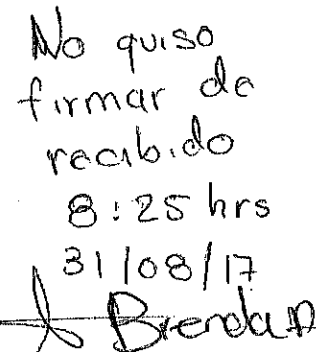 No quiso
firmar de
recibido
8:25 hrs
31/08/17
Brenda